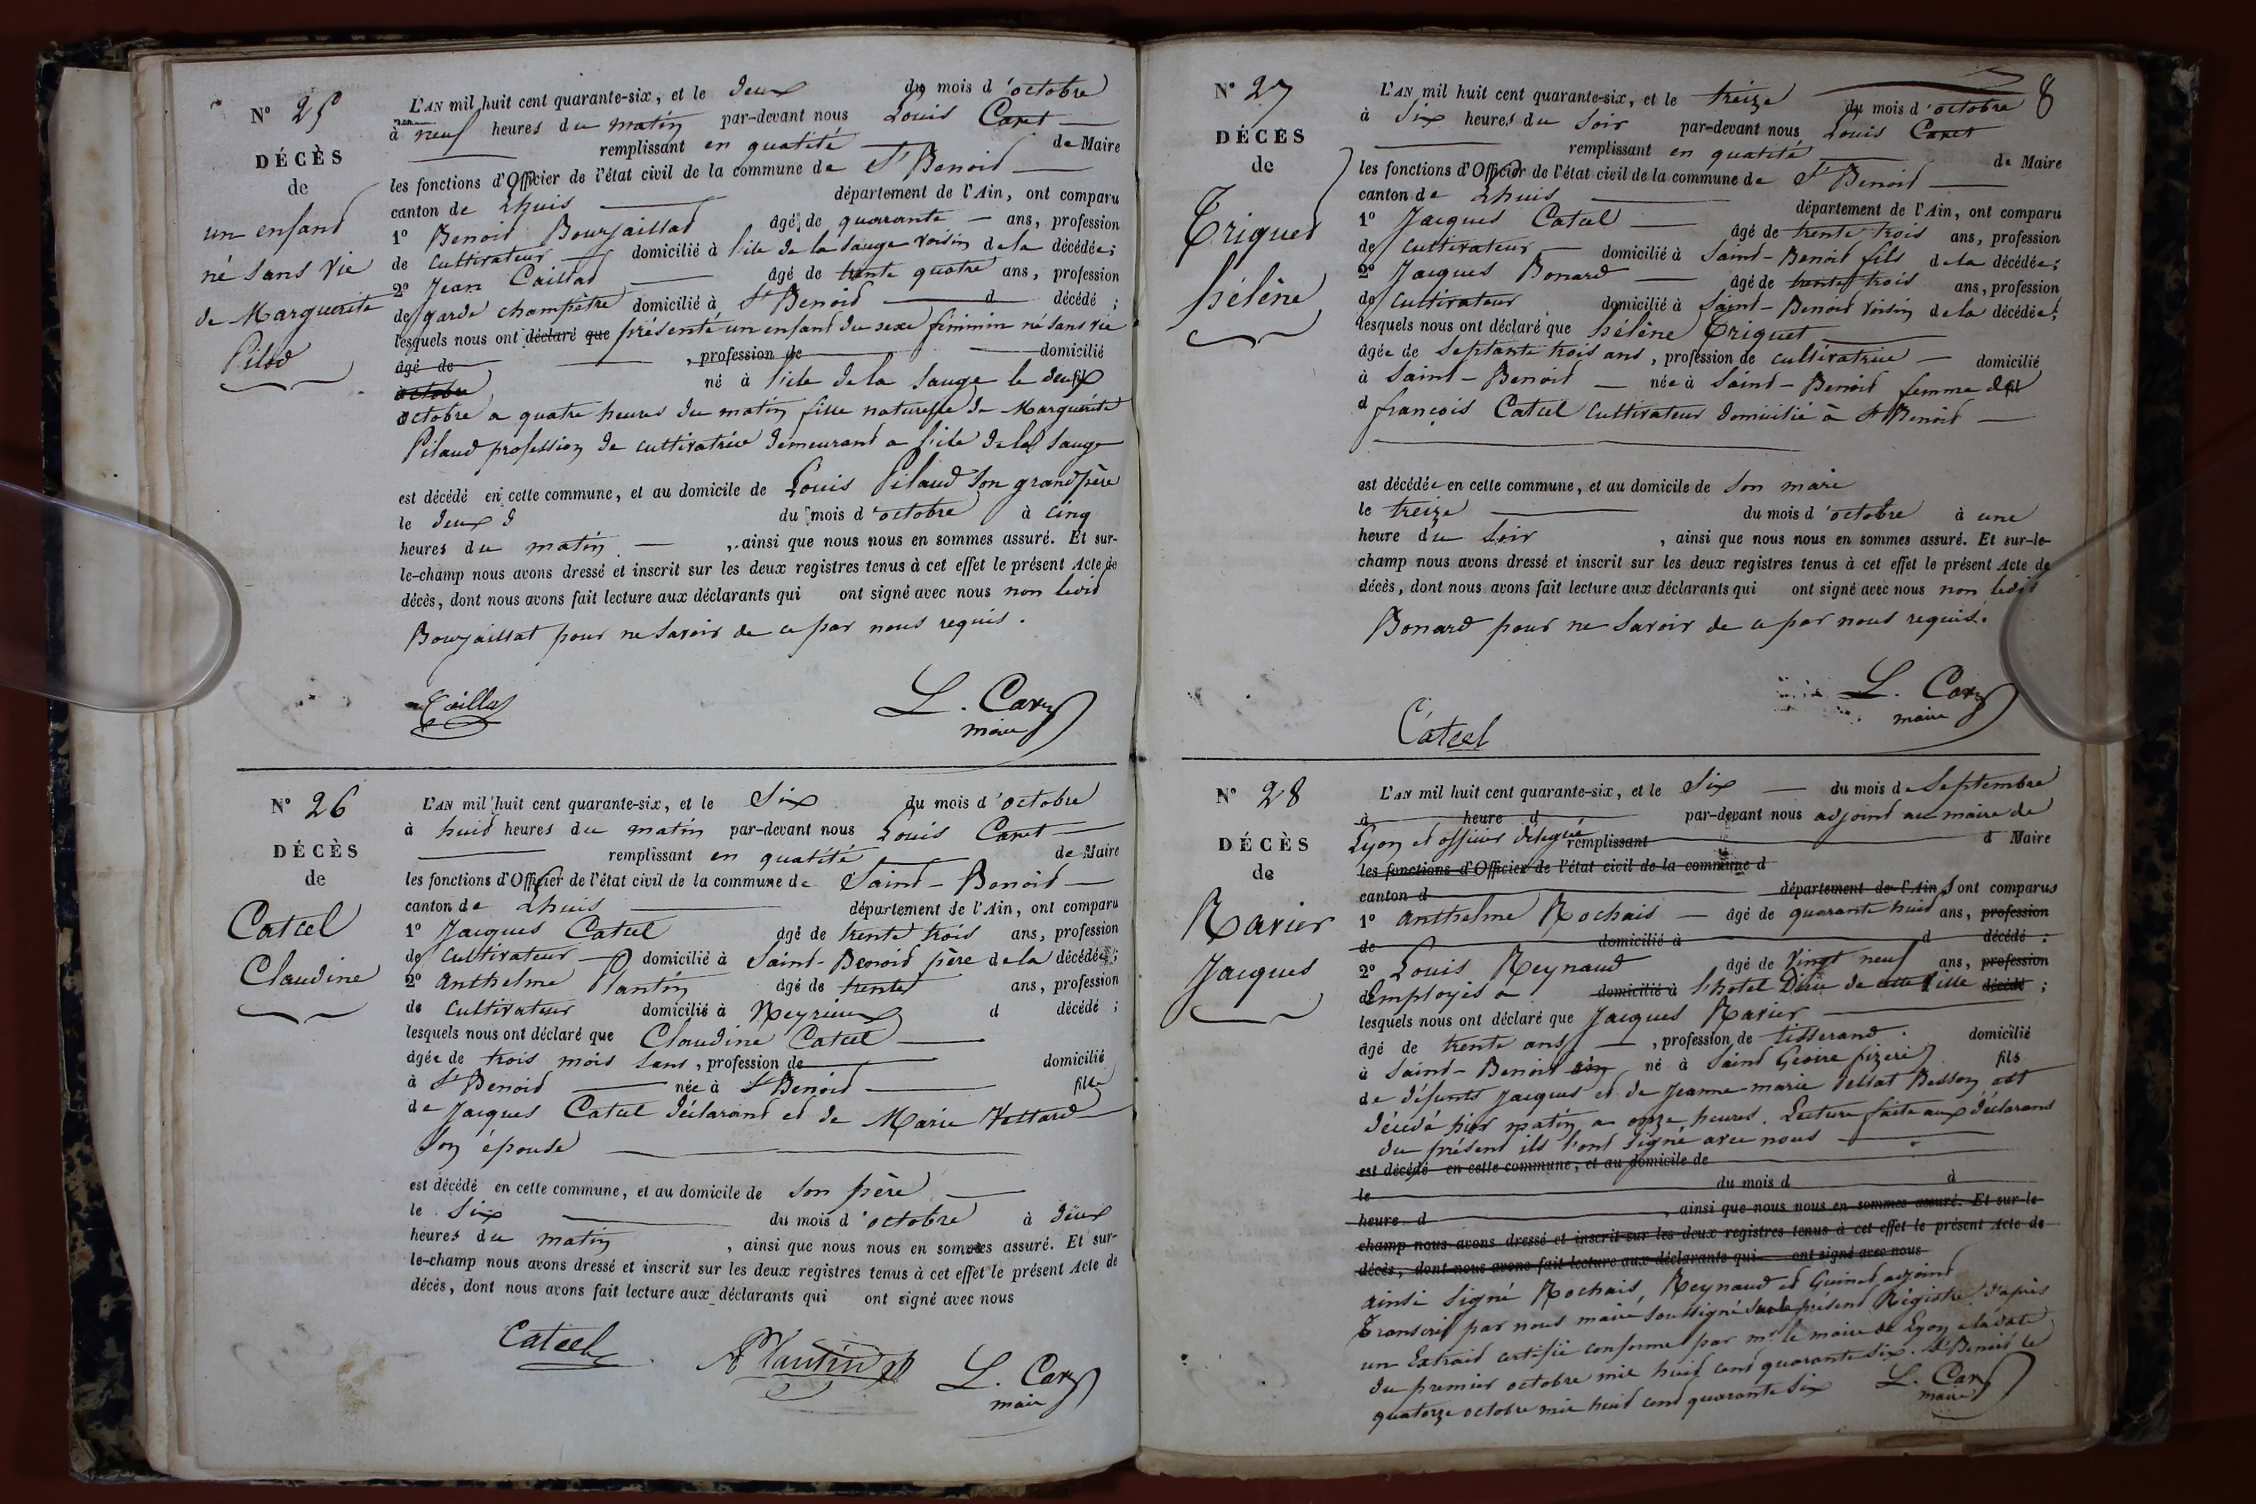 N° 25
DÉCÈS
de
un enfant
né sans vie
de Marguerite
Pilod
L'AN mil huit cent quarante-six, et le deux du mois d'octobre
à neuf heures du matin par-devant nous Louis Caret
remplissant en qualité de Maire
les fonctions d'Officier de l'état civil de la commune de St Benoit
canton de Lhuis département de l'Ain, ont comparu
1° Benoit Bourjaillat âgé de quarante ans, profession
de cultivateur domicilié à l'ile de la Sauge voisin de la décédée;
2° Jean Caillat âgé de trente quatre ans, profession
de garde champêtre domicilié à St Benoit d décédé ;
lesquels nous ont déclaré que présenté un enfant du sexe féminin né sans vie
âgé de , profession de domicilié
octobre né à l'ile de la Sauge le deux
octobre a quatre heures du matin fille naturelle de Marguerite
Pilaud profession de cultivatrice demeurant a l'ile de la Sauge
est décédé en cette commune, et au domicile de Louis Pilaud son grandpère
le deux d du mois d'octobre à cinq
heures du matin , ainsi que nous nous en sommes assuré. Et sur-
le-champ nous avons dressé et inscrit sur les deux registres tenus à cet effet le présent Acte de
décès, dont nous avons fait lecture aux déclarants qui ont signé avec nous non ledit
Bourjaillat pour ne savoir de ce par nous requis.
Caillat L. Caret
maire
N° 26
DÉCÈS
de
Catcel
Claudine
L'AN mil huit cent quarante-six, et le six du mois d'octobre
à huit heures du matin par-devant nous Louis Caret
remplissant en qualité de Maire
les fonctions d'Officier de l'état civil de la commune de Saint-Benoit
canton de Lhuis département de l'Ain, ont comparu
1° Jacques Catcel âgé de trente trois ans, profession
de cultivateur domicilié à Saint-Benoit père de la décédée;
2° Anthelme Plantin âgé de trente ans, profession
de cultivateur domicilié à Meyrieux d décédé ;
lesquels nous ont déclaré que Claudine Catcel
âgée de trois mois sans, profession de domicilié
à St Benoit née à St Benoit fille
de Jacques Catcel déclarant et de Marie Vettard
son épouse
est décédé en cette commune, et au domicile de son père
le six du mois d'octobre à deux
heures du matin , ainsi que nous nous en sommes assuré. Et sur-
le-champ nous avons dressé et inscrit sur les deux registres tenus à cet effet le présent Acte de
décès, dont nous avons fait lecture aux déclarants qui ont signé avec nous
Catcel A Plantin L. Caret
maire
8
N° 27
DÉCÈS
de
Triquet
hélène
L'AN mil huit cent quarante-six, et le treize du mois d'octobre
à six heures du soir par-devant nous Louis Caret
remplissant en qualité de Maire
les fonctions d'Officier de l'état civil de la commune de St Benoit
canton de Lhuis département de l'Ain, ont comparu
1° Jacques Catcel âgé de trente trois ans, profession
de cultivateur domicilié à Saint-Benoit fils de la décédée;
2° Jacques Bonard âgé de trente trois ans, profession
de cultivateur domicilié à Saint-Benoit voisin de la décédée;
lesquels nous ont déclaré que hélène Triquet
âgée de septante trois ans, profession de cultivatrice domicilié
à Saint-Benoit née à Saint-Benoit femme de
d françois Catcel cultivateur domicilié à St Benoit
est décédée en cette commune, et au domicile de son mari
le treize du mois d'octobre à une
heure du soir , ainsi que nous nous en sommes assuré. Et sur-le-
champ nous avons dressé et inscrit sur les deux registres tenus à cet effet le présent Acte de
décès, dont nous avons fait lecture aux déclarants qui ont signé avec nous non ledit
Bonard pour ne savoir de ce par nous requis.
L. Caret
maire
Catcel
N° 28
DÉCÈS
de
Ravier
Jacques
L'AN mil huit cent quarante-six, et le six du mois de Septembre
à heure d par-devant nous adjoint au maire de
Lyon et officier délégué remplissant d Maire
les fonctions d'Officier de l'état civil de la commune d
canton d département de l'Ain, sont comparus
1° Anthelme Rochais âgé de quarante huit ans, profession
de domicilié à d décédé :
2° Louis Reynaud âgé de vingt neuf ans, profession
d Employés a domicilié à l'hotel Dieu de cette ville décédé ;
lesquels nous ont déclaré que Jacques Ravier
âgé de trente ans , profession de tisserand domicilié
à Saint-Benoit né à Saint Geoire fils
de défunts Jacques et de Jeanne marie Besson est
décédé hier matin a onze heures. Lecture faite aux déclarans
du présent ils l'ont signé avec nous
est décédé en cette commune, et au domicile de
le du mois d d
heure d , ainsi que nous nous en sommes assuré. Et sur-le-
champ nous avons dressé et inscrit sur les deux registres tenus à cet effet le présent Acte de
décès, dont nous avons fait lecture aux déclarants qui ont signé avec nous
ainsi signé Rochais, Reynaud et Guinet adjoint
Transcrit par nous maire soussigné sur le présent Régistre d'après
un Extrait certifié conforme par mr le maire de Lyon a la date
du premier octobre mil huit cent quarante six. St Benoit le
quatorze octobre mil huit cent quarante six L. Caret
maire